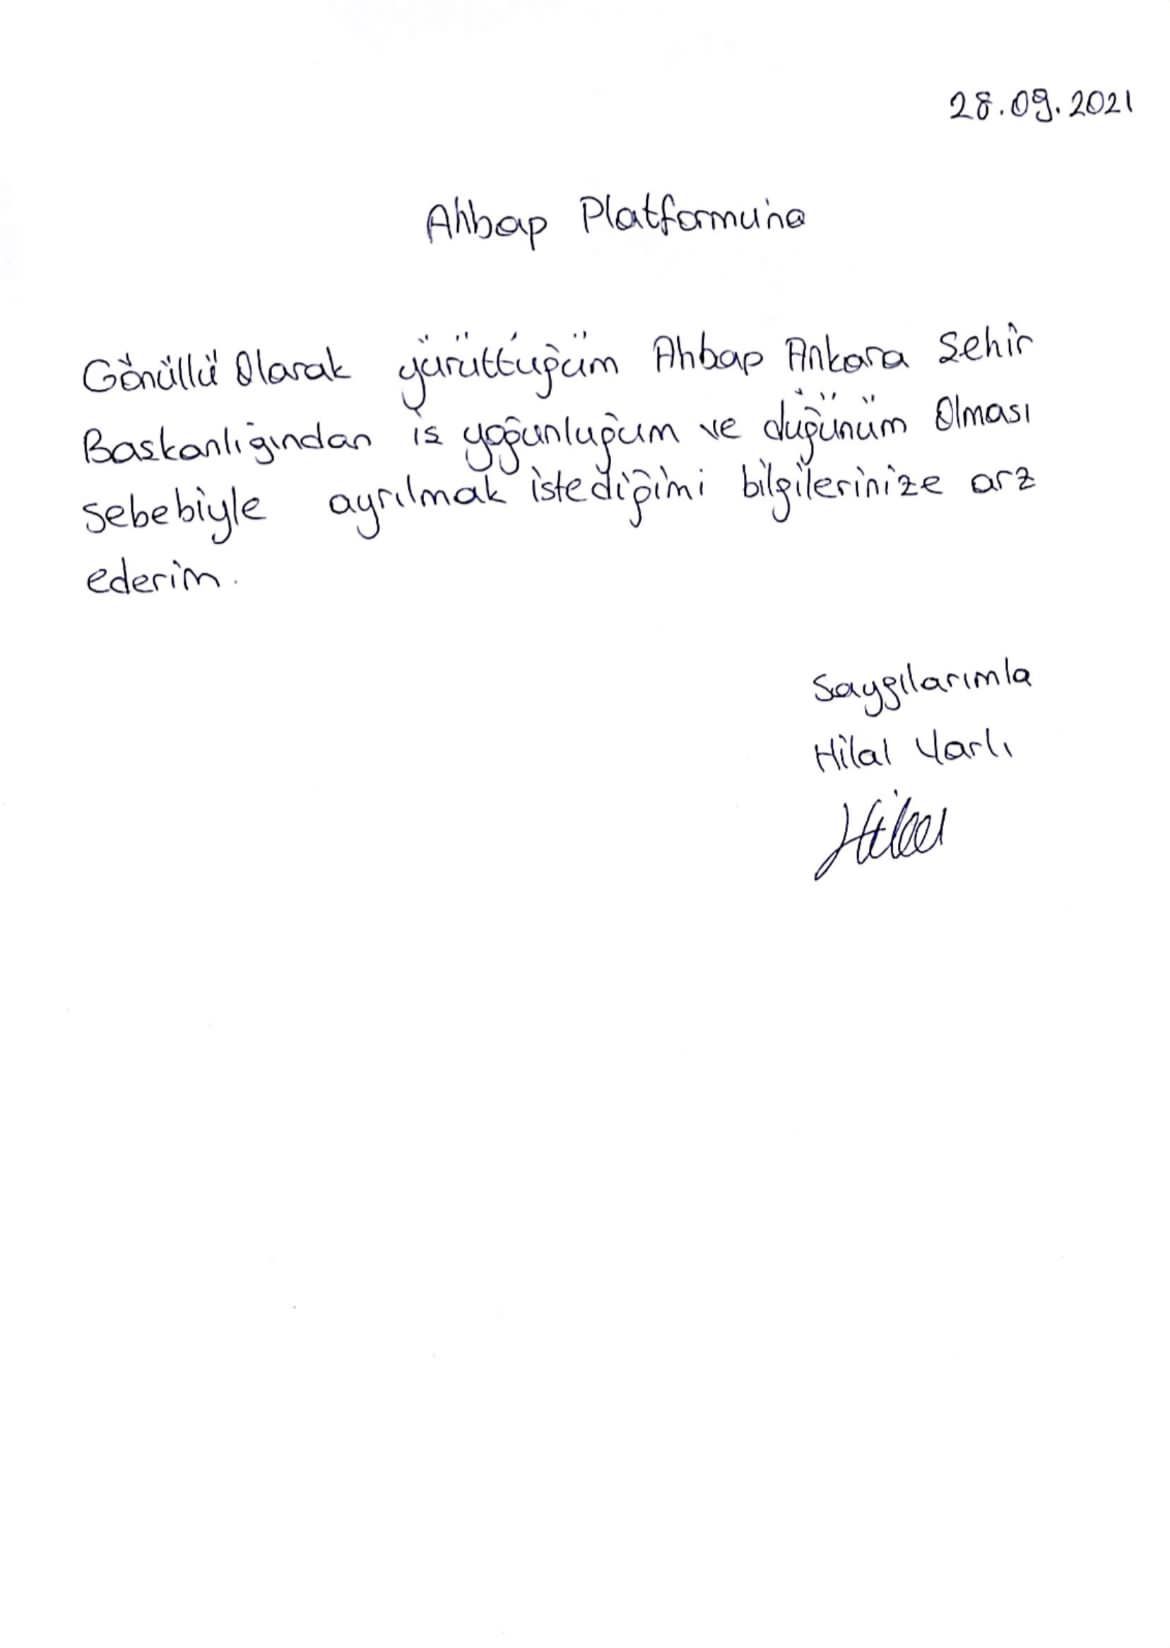 28.09.2021
Ahbap Platformuna
Gönüllü Olarak yürüttüğüm Ahbap Ankara Sehir
Baskanlığından is yoğunluğum ve düğünüm Olması
sebebiyle ayrılmak istediğimi bilgilerinize arz
ederim.
Saygılarımla
Hilal Yarlı
Hilal